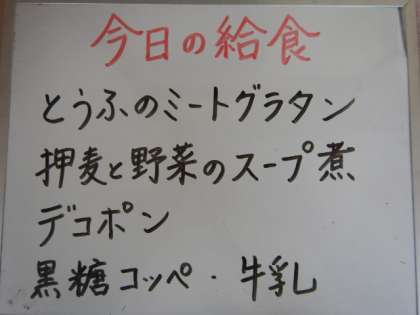 今日の給食
とうふのミートグラタン
押麦と野菜のスープ煮
デコポン
黒糖コッペ・牛乳